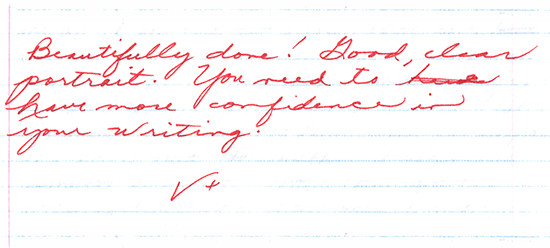 Beautifully done! Good, clear
portrait. You need to
have more confidence in
your writing.
√+